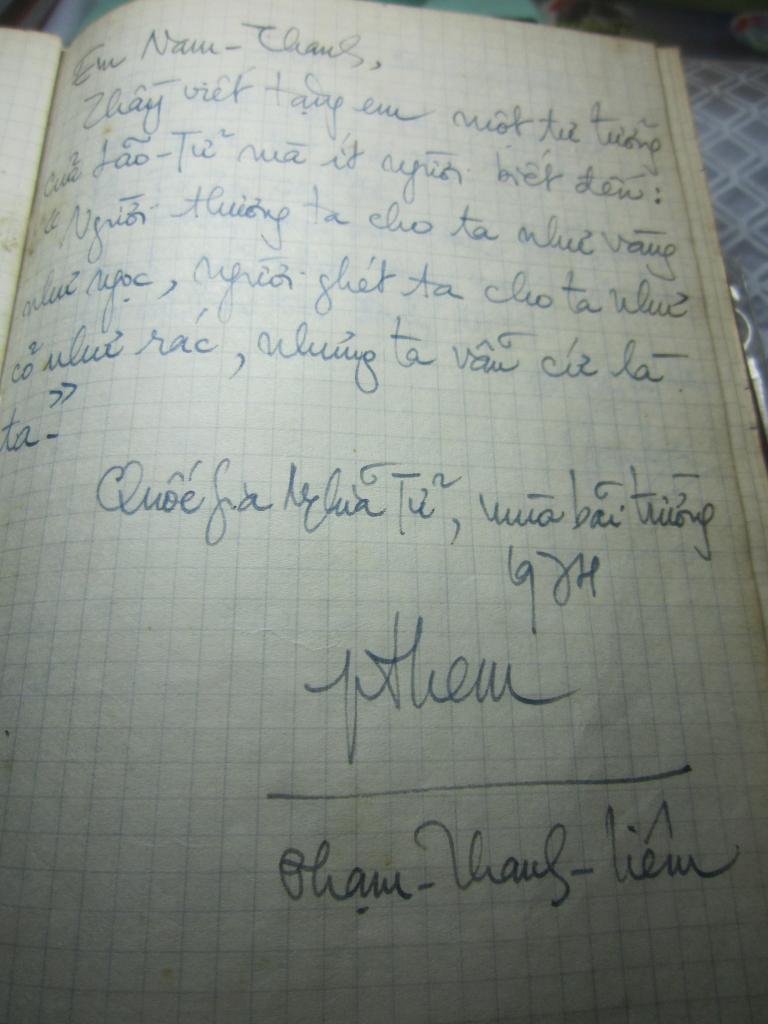 Em Nam-Thanh,
Thầy viết tặng em một tư tưởng
của Lão-Tử mà ít người biết đến:
"Người thương ta cho ta như vàng
như ngọc, người ghét ta cho ta như
cỏ như rác, nhưng ta vẫn cứ là
ta."
Quốc gia Nghĩa Tử, mùa bãi trường
1974
Phạm-Thanh-Liêm